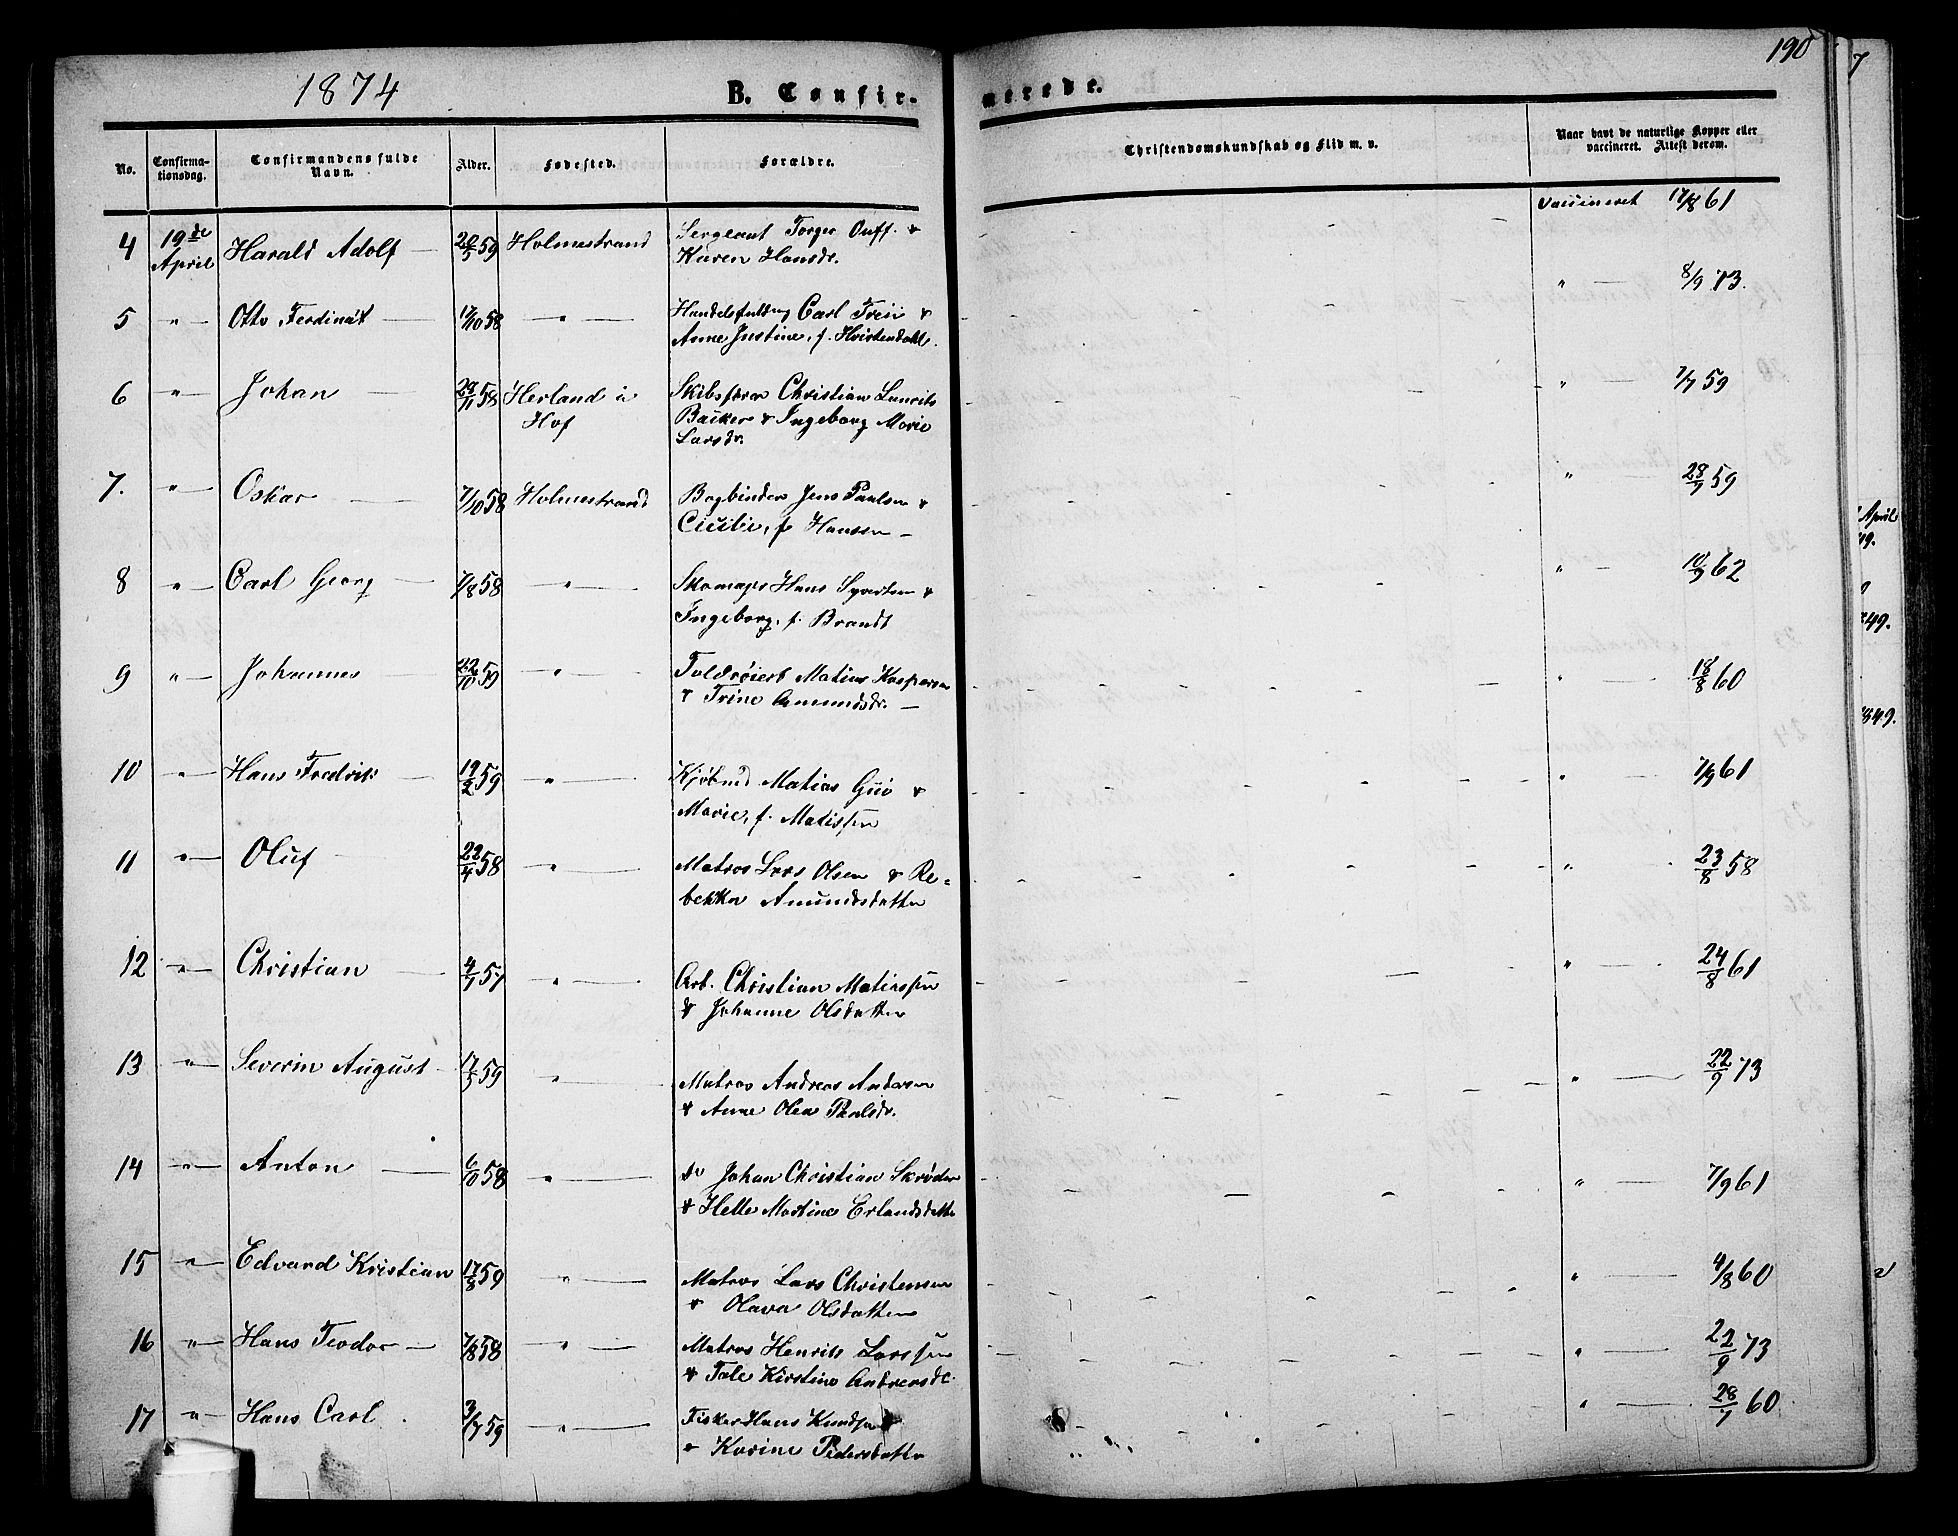 1874
B. Confir-
merede.
190
No.
Confirma-
tionsdag.
Confirmandens fulde
Navn.
Alder.
Fødested.
Forældre.
Christendomskundskab og Flid m. v.
Naar havt de naturlige Kopper eller
vaccineret. Attest derom.
4 19de April Harald Adolf 20/5 59 Holmestrand Sergeant Torger &
Karen Hansdr. Vaccineret 17/8 61
5 " Otto Ferdinat 17/10 58 " Carl &
Anne Justine, f. " 8/9 73.
6 " Johan 29/11 58 Herland i Hof Christian Laurits
Backer & Ingeborg Marie
Larsdr. " 7/7 59
7. " Oskar 7/10 58 Holmestrand Bogbinder Jens Paulsen &
Cicilie, f. Hansen " 28/7 59
8 " Carl Georg 7/8 58 " Skomager Hans Syvertsen &
Ingeborg, f. Brandt " 10/9 62
9 " Johannes 22/10 59 " Matius Kaspersen
& Trine Amundsdr. " 18/8 60
10 " Hans Fredrik 19/2 59 " Kjøbmd Matias &
Marie, f. Matissen " 7/9 61
11 " Oluf 22/4 58 " Matros Lars Olsen & Re-
bekka Amundsdatter " 23/8 58
12 " Christian 4/7 57 " Arb. Christian Matiassen
& Johanne Olsdatter " 24/8 61
13 " Severin August 17/5 59 " Matros Andreas Andersen
& Anne Olea Paulsdr. " 22/9 73
14 " Anton 6/10 58 " do Johan Christian Skrøder
& Helle Martine Erlandsdatter " 7/9 61
15 " Edvard Kristian 17/8 59 " Matros Lars Christensen
& Olava Olsdatter " 4/8 60
16 " Hans Teodor 7/8 58 " Matros Henrik Larssen
& Tale Kirstine Andreasdr. " 22/9 73
17 " Hans Carl. 3/7 59 " Fisker Hans Knudsen
& Karine Pedersdatter " 28/7 60
7
April
49.
49.
1849.